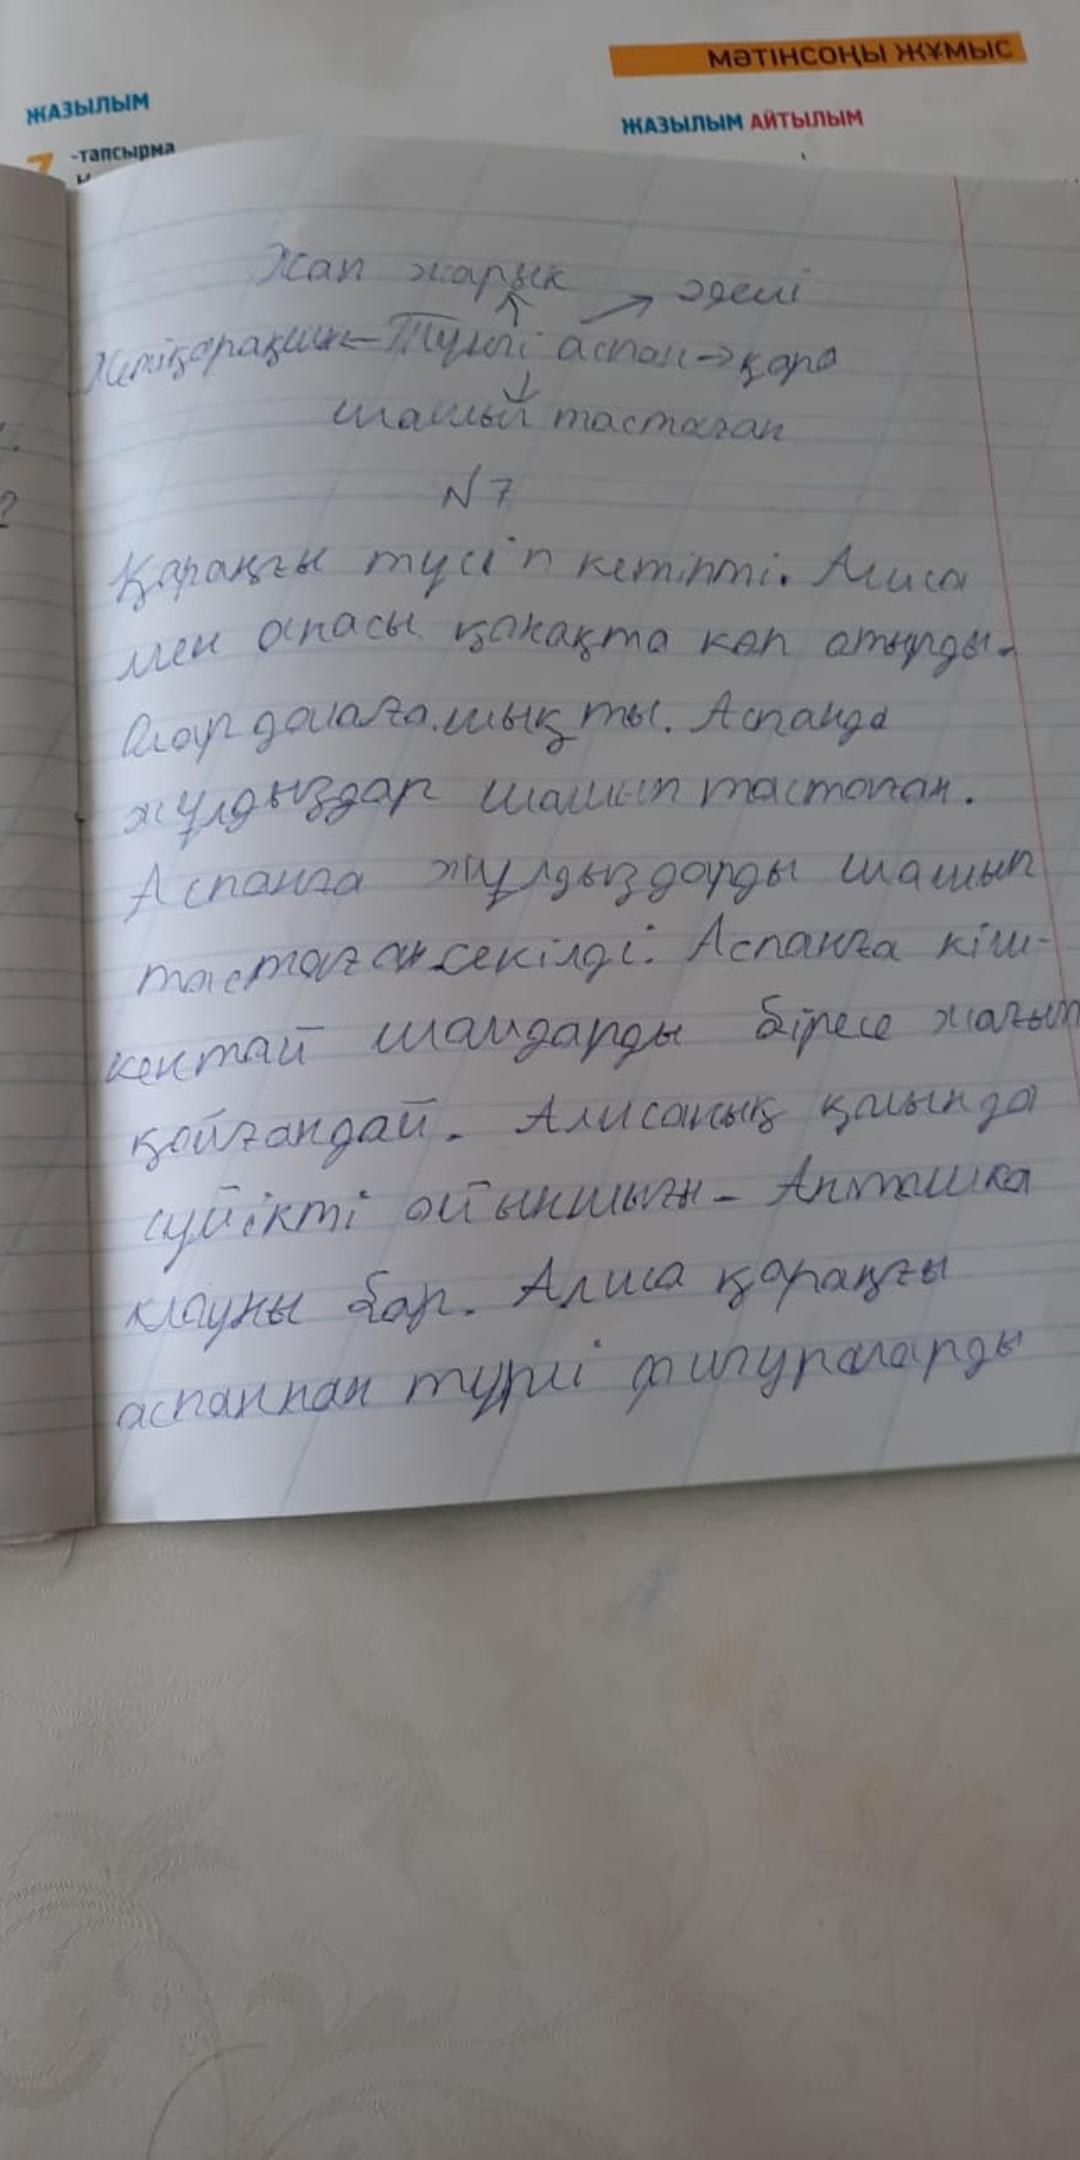 МӘТІНСОҢЫ ЖҰМЫС
ЖАЗЫЛЫМ
ЖАЗЫЛЫМ АЙТЫЛЫМ
7 -тапсырма
Жап жарық әдемі
Жетіқарақшы Түнгі аспан қара
шашып тастаған
N7
Қараңғы түсіп кетіпті. Алиса
мен апасы қонақта көп отырды.
Олар далаға шықты. Аспанда
жұлдыздар шашып тастаған.
Аспанға жұлдыздарды шашып
тастаған секілді. Аспанға кіш-
кентай шамдарды біресе жағып
қойғандай. Алисаның қолында
сүйікті ойыншығы - Антошка
клоуны бар. Алиса қараңғы
аспаннан түрлі фигураларды